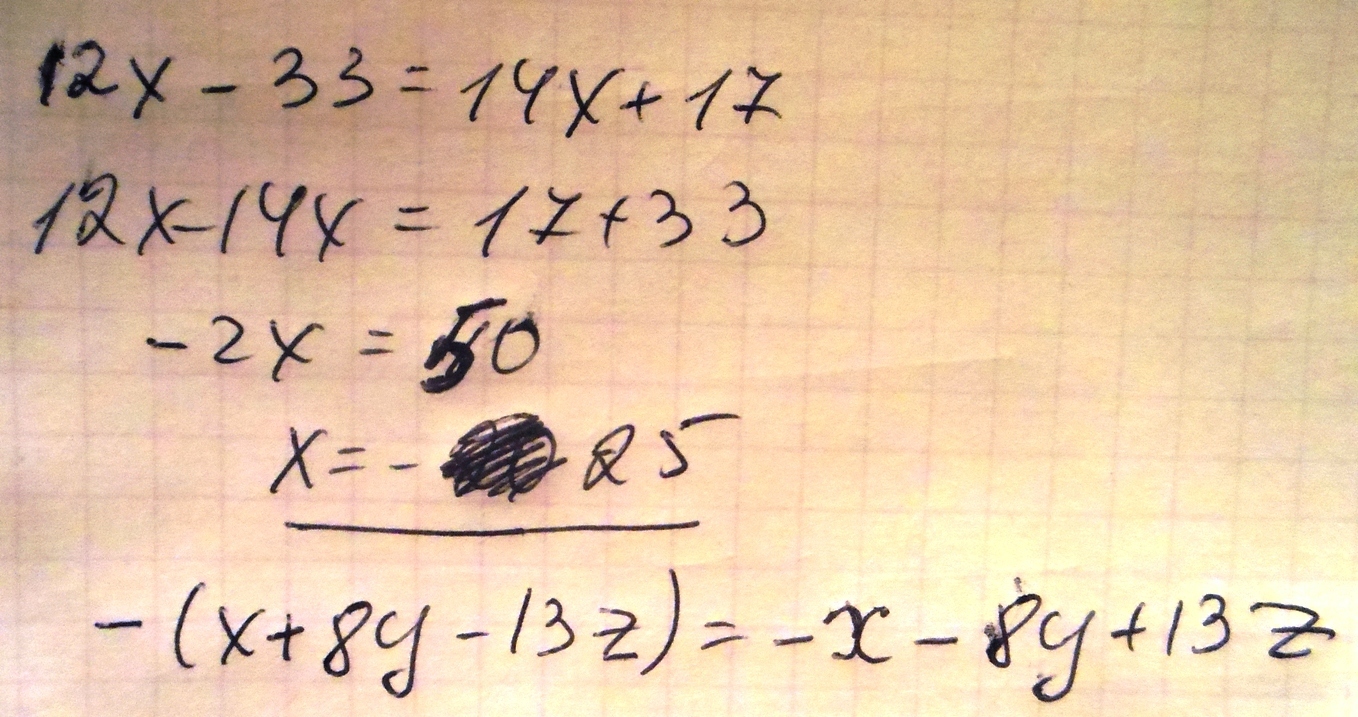 12x - 33 = 14x + 17
12x - 14x = 17 + 33
-2x = 50
x = - 25
-(x + 8y - 13z) = -x - 8y + 13z